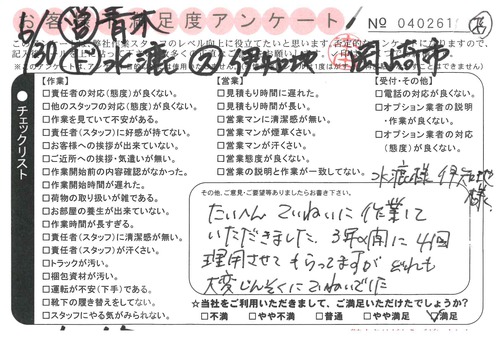 お客様満足度アンケート
№ 040261
5/30 営 青木
伊知地
岡崎市
【作業】
□責任者の対応(態度)が良くない。
□他のスタッフの対応(態度)が良くない。
□作業を見ていて不安がある。
□責任者(スタッフ)に好感が持てない。
□お客様への挨拶が出来ていない。
□ご近所への挨拶・気遣いが無い。
□作業開始前の内容確認がなかった。
□作業開始時間が遅れた。
□荷物の取り扱いが雑である。
□お部屋の養生が出来ていない。
□作業時間が長すぎる。
□責任者(スタッフ)に清潔感が無い。
□責任者(スタッフ)が汗くさい。
□トラックが汚い。
□梱包資材が汚い。
□運転が不安(下手)である。
□靴下の履き替えをしてない。
□スタッフにやる気がみられない。
チェックリスト
【営業】
□見積もり時間に遅れた。
□見積もり時間が長い。
□営業マンに清潔感が無い。
□営業マンが煙草くさい。
□営業マンが汗くさい。
□営業態度が良くない。
□営業の説明と作業が一致してない。
【受付・その他】
□電話の対応が良くない。
□オプション業者の説明
・作業が良くない。
□オプション業者の対応
(態度)が良くない。
水渡様 伊知地様
その他、ご意見・ご要望等ありましたらお書き下さい。
たいへん ていねいに 作業して
いただきました。3年の間に 4回
利用させて もらってますが どれも
大変じんそくに ていねいでした
☆当社をご利用いただきまして、ご満足いただけたでしょうか?
□不満 □やや不満 □普通 □やや満足 ☑満足